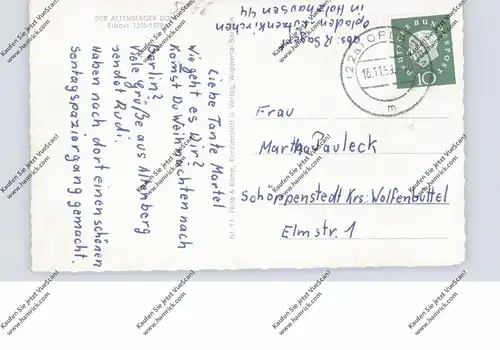 DER ALTENBERGER DOM
Erbaut 1255-1379
Liebe Tante Martel
Wie geht es Dir?
Kommst Du Weihnachten nach
Berlin?
Viele Grüße aus Altenberg
sendet Rudi.
Haben nach dort einen schönen
Sontagspaziergang gemacht.
abs. R. Sager
Opladen-Lützenkirchen
in Holzhausen 44
(22a) OPL
16.11.5
m
DEUTSCHE BUNDESPOST
10
Frau
Martha Pauleck
Schöppenstedt Krs: Wolfenbüttel
Elmstr. 1
Kaufen Sie jetzt VueScan!
www.hamrick.com